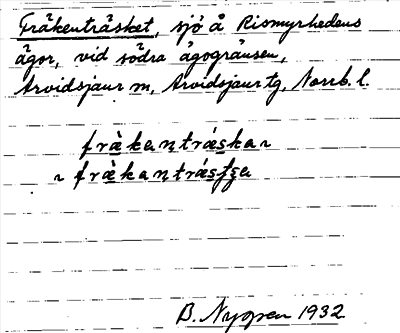 Fräkenträsket, sjö å Rismyrhedens
ägor, vid södra ägogränsen,
Arvidsjaur m, Arvidsjaur tg, Norrb. l.
fràkantráska ~
~ fràkantrásʃa
B. Nygren 1932